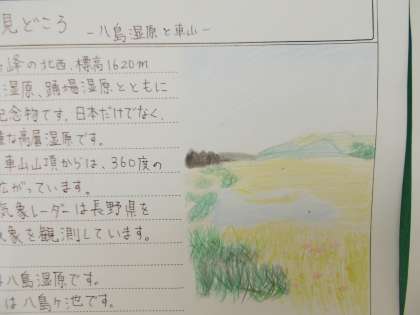 見どころ －八島湿原と車山－
峰の北西、標高1620m
湿原、踊場湿原とともに
記念物です。日本だけでなく、
な高層湿原です。
車山山頂からは、360度の
がっています。
気象レーダーは長野県を
象を観測しています。
は八島湿原です。
は八島ヶ池です。